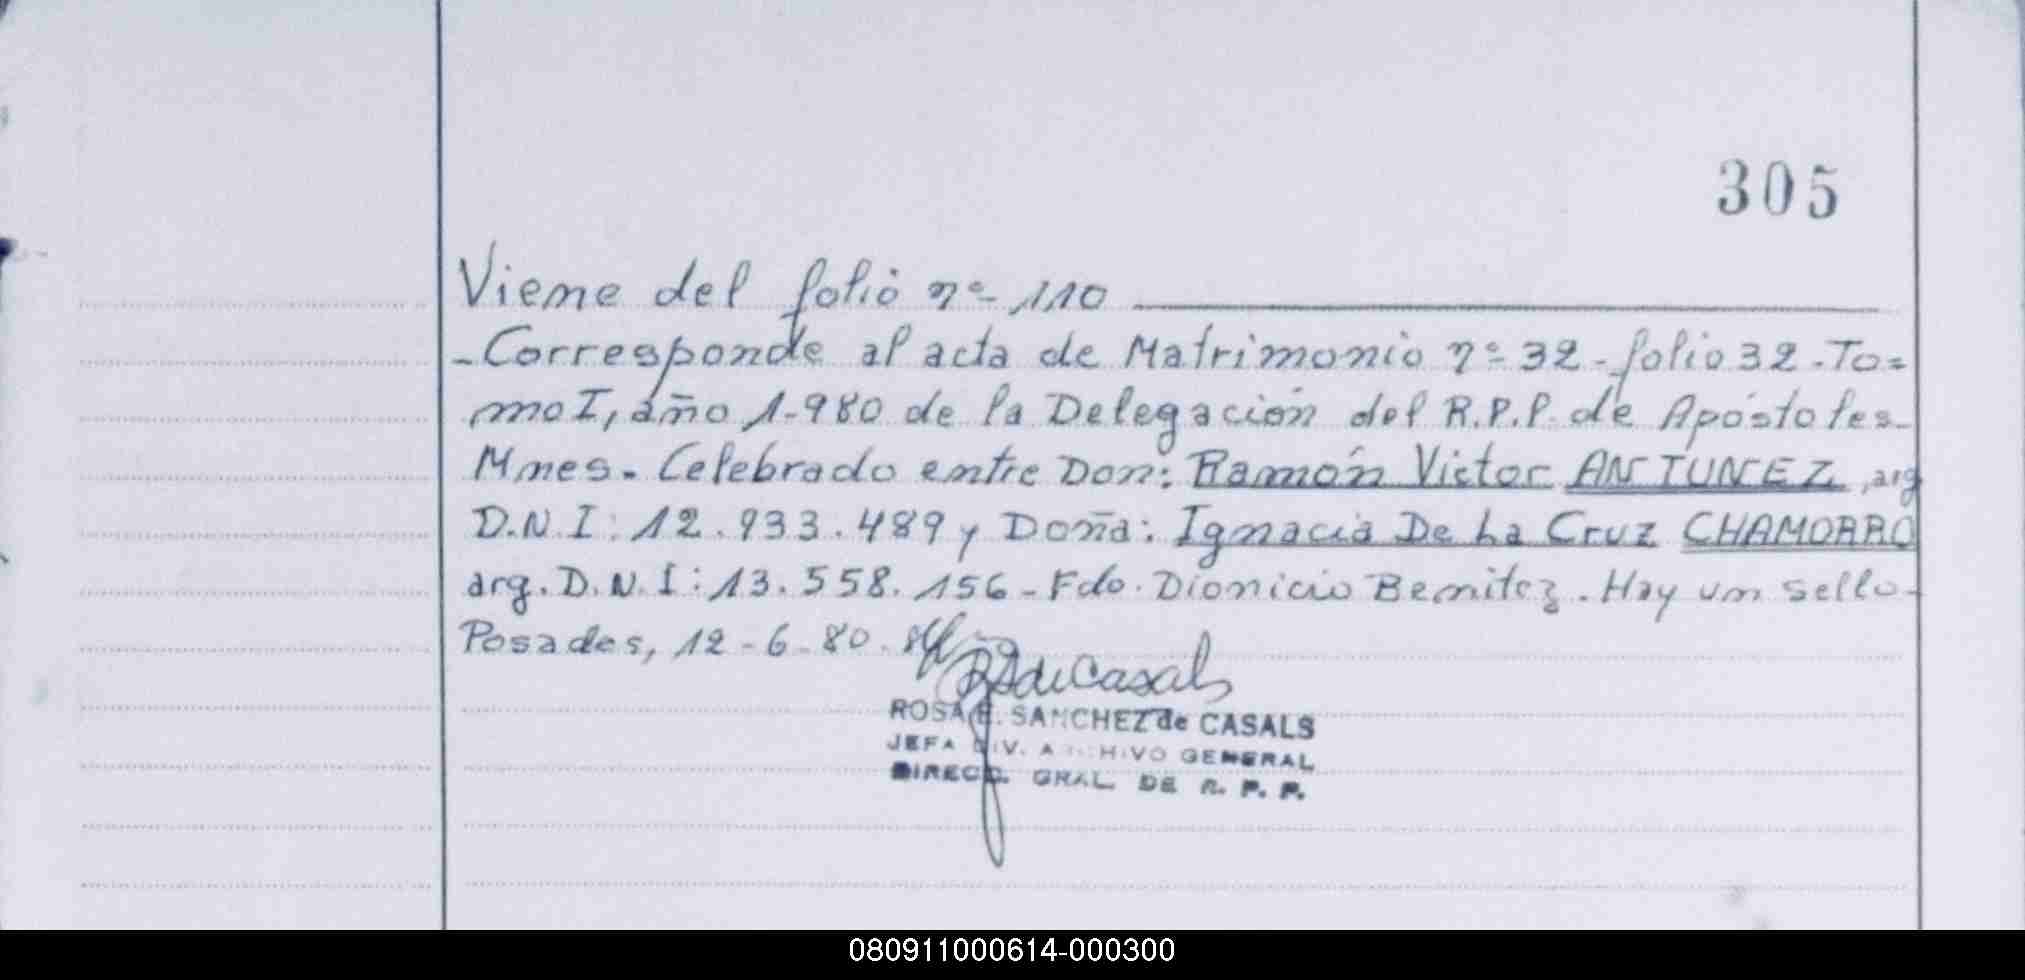 305
Viene del folio nº 110
-Corresponde al acta de Matrimonio nº 32 - folio 32 - To=
mo I, año 1-980 de la Delegación del R.P.P. de Apóstoles-
Mnes. Celebrado entre Don: Ramón Victor ANTUNEZ, arg
D.N.I: 12.933.489 y Doña: Ignacia De La Cruz CHAMORRO
arg. D.N.I: 13.558.156 - Fdo. Dionicio Benitez. Hay un sello-
Posadas, 12-6-80.
RSdeCasals
ROSA E. SANCHEZ de CASALS
JEFA DIV. ARCHIVO GENERAL
DIRECC. GRAL. DE R. P. P.
080911000614-000300